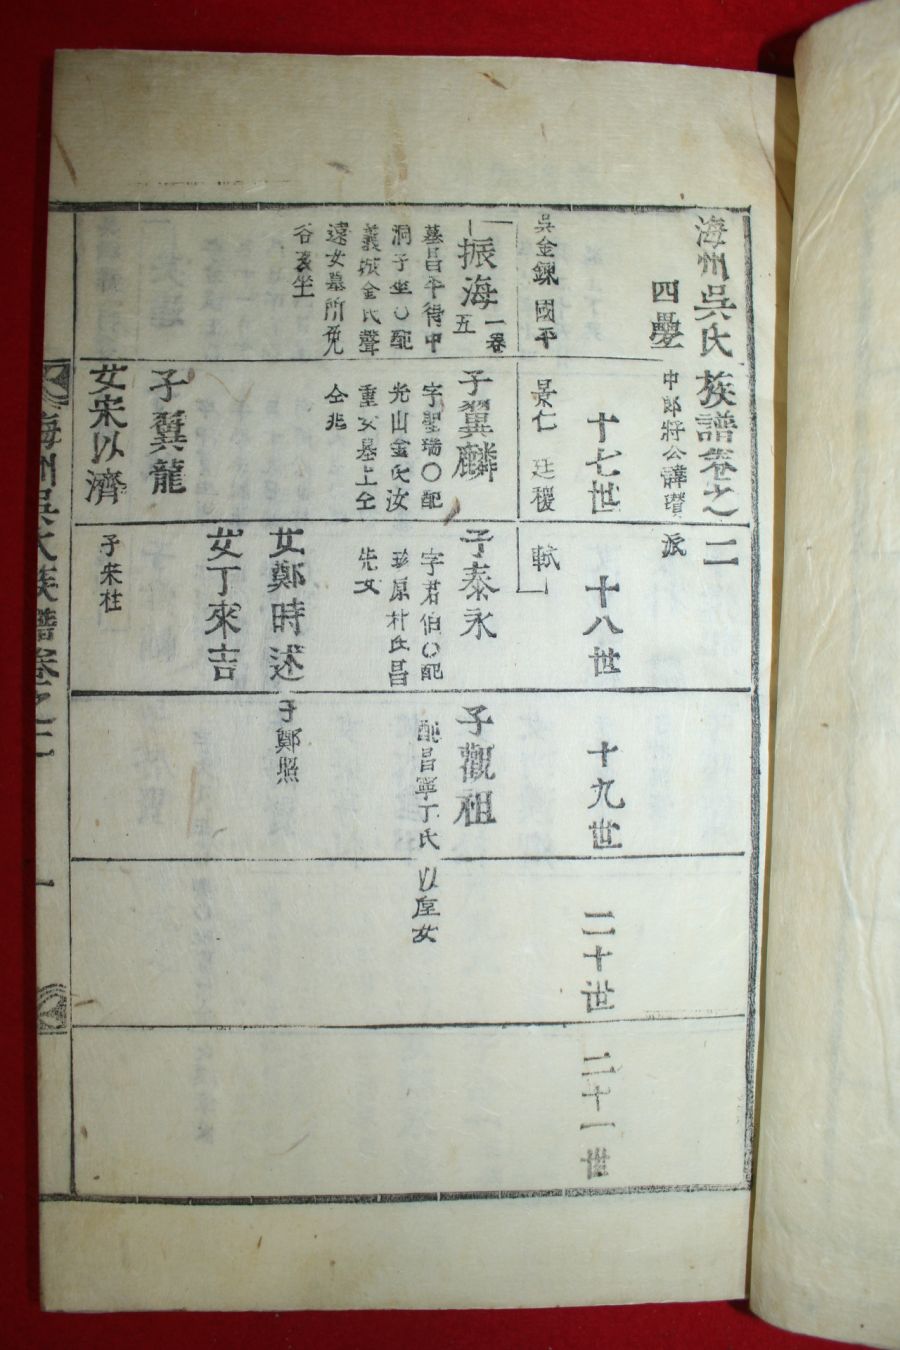 海州吳氏族譜卷之二
四疊
中郎將公諱瓚派
十七世
十八世
十九世
二十世
二十一世
吳金鍊 國平
景仁 廷稷
軾
振海 一卷五
墓昌平待中
洞子坐○配
義城金氏聲
遠女墓所免
谷亥坐
子翼麟
字聖瑞○配
光山金氏汝
重女墓上仝
仝兆
子泰永
字君伯○配
珍原朴氏昌
先女
子觀祖
配昌寧丁氏
以座女
女鄭時述
子鄭熙
女丁來吉
子翼龍
女宋以濟
子宋柱
海州吳氏族譜卷之二
一